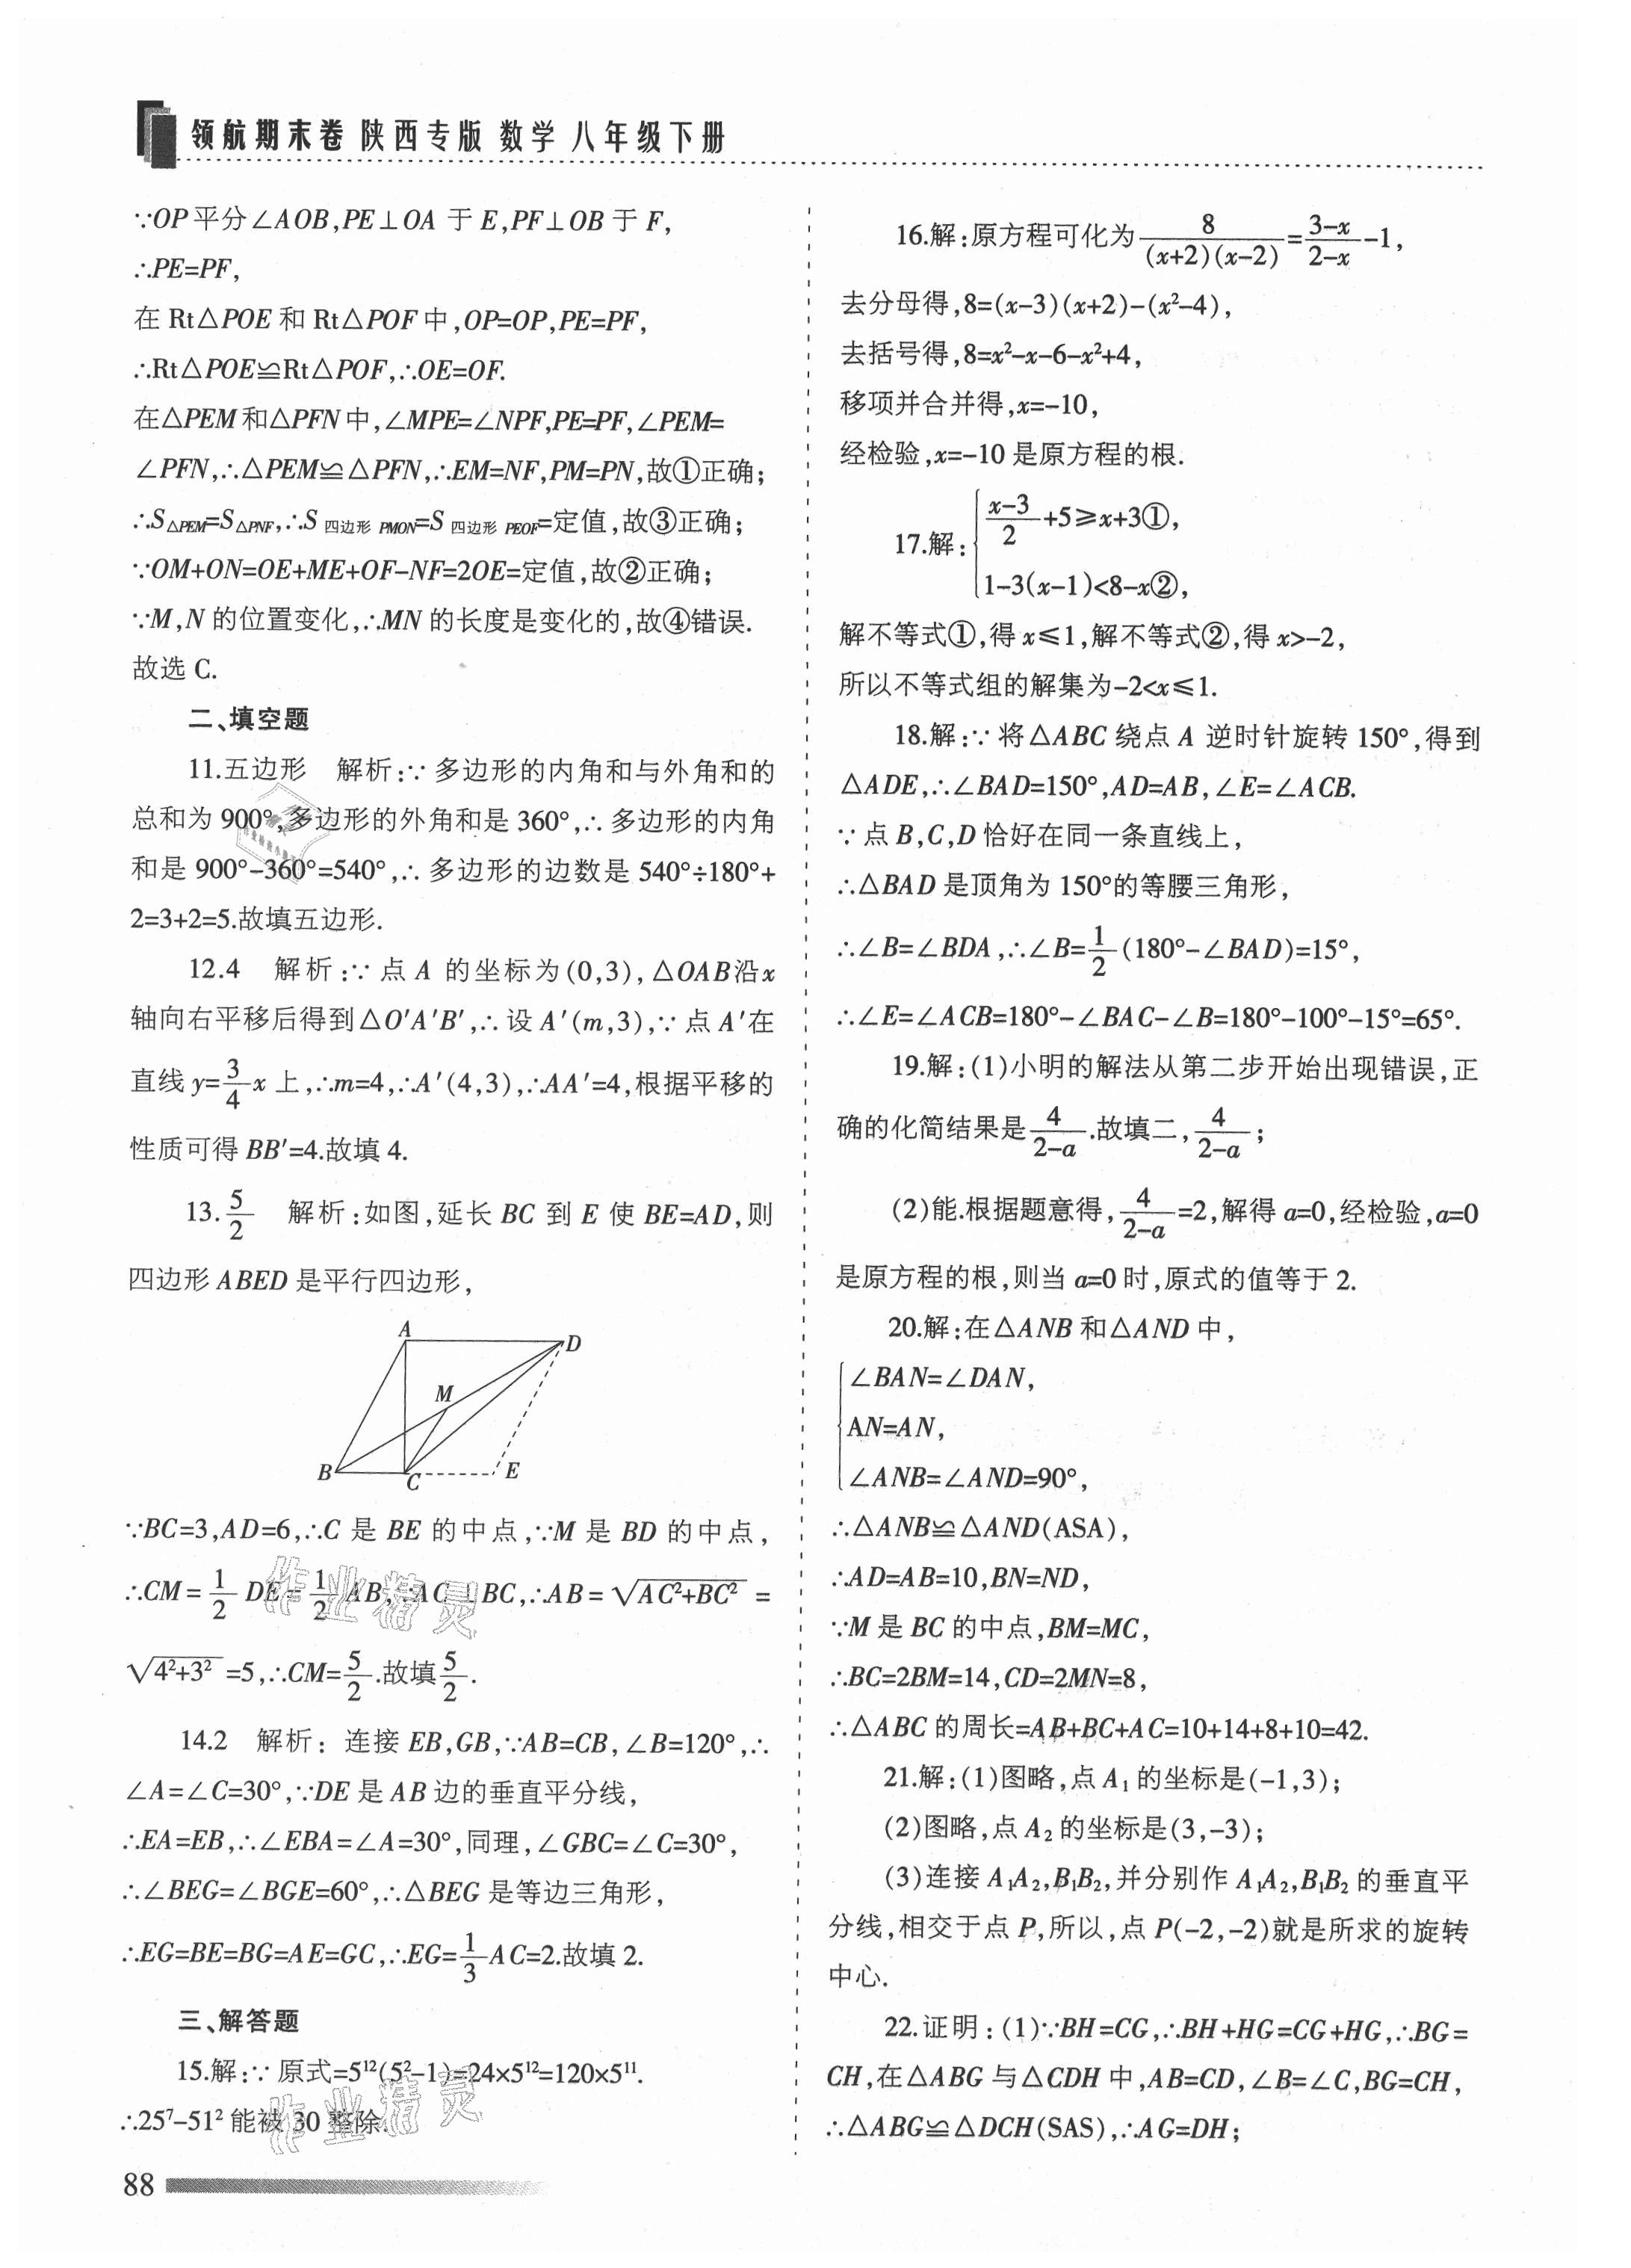 领航期末卷 陕西专版 数学 八年级下册
∵OP平分∠AOB,PE⊥OA 于 E,PF⊥OB 于 F,
∴PE=PF,
在 Rt△POE 和 Rt△POF 中,OP=OP,PE=PF,
∴Rt△POE≌Rt△POF,∴OE=OF.
在△PEM 和△PFN 中,∠MPE=∠NPF,PE=PF,∠PEM=
∠PFN,∴△PEM≌△PFN,∴EM=NF,PM=PN,故①正确;
∴S△PEM=S△PNF,∴S四边形PMON=S四边形PEOF=定值,故③正确;
∵OM+ON=OE+ME+OF-NF=2OE=定值,故②正确;
∵M,N 的位置变化,∴MN 的长度是变化的,故④错误.
故选 C.
二、填空题
11.五边形 解析:∵ 多边形的内角和与外角和的
总和为 900°,多边形的外角和是 360°,∴ 多边形的内角
和是 900°-360°=540°,∴ 多边形的边数是 540°÷180°+
2=3+2=5.故填五边形.
12.4 解析:∵ 点 A 的坐标为(0,3),△OAB沿x
轴向右平移后得到△O′A′B′,∴ 设 A′(m,3),∵ 点 A′在
直线 y=3/4 x 上,∴m=4,∴A′(4,3),∴AA′=4,根据平移的
性质可得 BB′=4.故填 4.
13.5/2 解析:如图,延长 BC 到 E 使 BE=AD,则
四边形 ABED 是平行四边形,
A
D
M
B
C
E
∵BC=3,AD=6,∴C 是 BE 的中点,∵M 是 BD 的中点,
∴CM=1/2 DE=1/2 AB,∵AC⊥BC,∴AB=√(AC²+BC²)=
√(4²+3²)=5,∴CM=5/2.故填5/2.
14.2 解析:连接 EB,GB,∵AB=CB,∠B=120°,∴
∠A=∠C=30°,∵DE 是 AB 边的垂直平分线,
∴EA=EB,∴∠EBA=∠A=30°,同理,∠GBC=∠C=30°,
∴∠BEG=∠BGE=60°,∴△BEG 是等边三角形,
∴EG=BE=BG=AE=GC,∴EG=1/3 AC=2.故填 2.
三、解答题
15.解:∵ 原式=5¹²(5²-1)=24×5¹²=120×5¹¹.
∴25⁷-51² 能被 30 整除.
88
16.解:原方程可化为 8/((x+2)(x-2))=(3-x)/(2-x)-1,
去分母得,8=(x-3)(x+2)-(x²-4),
去括号得,8=x²-x-6-x²+4,
移项并合并得,x=-10,
经检验,x=-10 是原方程的根.
17.解:{(x-3)/2+5≥x+3①,
1-3(x-1)<8-x②,
解不等式①,得 x≤1,解不等式②,得 x>-2,
所以不等式组的解集为-2<x≤1.
18.解:∵ 将△ABC 绕点 A 逆时针旋转 150°,得到
△ADE,∴∠BAD=150°,AD=AB,∠E=∠ACB.
∵ 点 B,C,D 恰好在同一条直线上,
∴△BAD 是顶角为 150°的等腰三角形,
∴∠B=∠BDA,∴∠B=1/2(180°-∠BAD)=15°,
∴∠E=∠ACB=180°-∠BAC-∠B=180°-100°-15°=65°.
19.解:(1)小明的解法从第二步开始出现错误,正
确的化简结果是4/(2-a).故填二,4/(2-a);
(2)能.根据题意得,4/(2-a)=2,解得 a=0,经检验,a=0
是原方程的根,则当 a=0 时,原式的值等于 2.
20.解:在△ANB 和△AND 中,
{∠BAN=∠DAN,
AN=AN,
∠ANB=∠AND=90°,
∴△ANB≌△AND(ASA),
∴AD=AB=10,BN=ND,
∵M 是 BC 的中点,BM=MC,
∴BC=2BM=14,CD=2MN=8,
∴△ABC 的周长=AB+BC+AC=10+14+8+10=42.
21.解:(1)图略,点 A₁ 的坐标是(-1,3);
(2)图略,点 A₂ 的坐标是(3,-3);
(3)连接 A₁A₂,B₁B₂,并分别作 A₁A₂,B₁B₂ 的垂直平
分线,相交于点 P,所以,点 P(-2,-2)就是所求的旋转
中心.
22.证明:(1)∵BH=CG,∴BH+HG=CG+HG,∴BG=
CH,在△ABG 与△CDH 中,AB=CD,∠B=∠C,BG=CH,
∴△ABG≌△DCH(SAS),∴AG=DH;
作业精灵
作业精灵